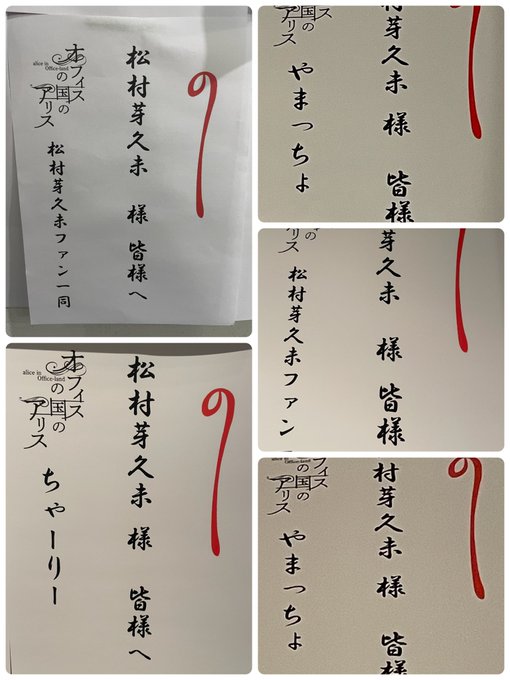 の
松村芽久未 様 皆様へ
オフィス
の国の
アリス
alice in
Office-land
松村芽久未ファン一同
の
松村芽久未 様 皆様へ
オフィス
の国の
アリス
alice in
Office-land
ちゃーりー
村芽久未 様 皆様
ィス
国の
アリス
やまっちょ
芽久未 様 皆様
の
リス
松村芽久未ファン
の
村芽久未 様 皆様
フィス
の国の
アリス
Office-land
やまっちょ